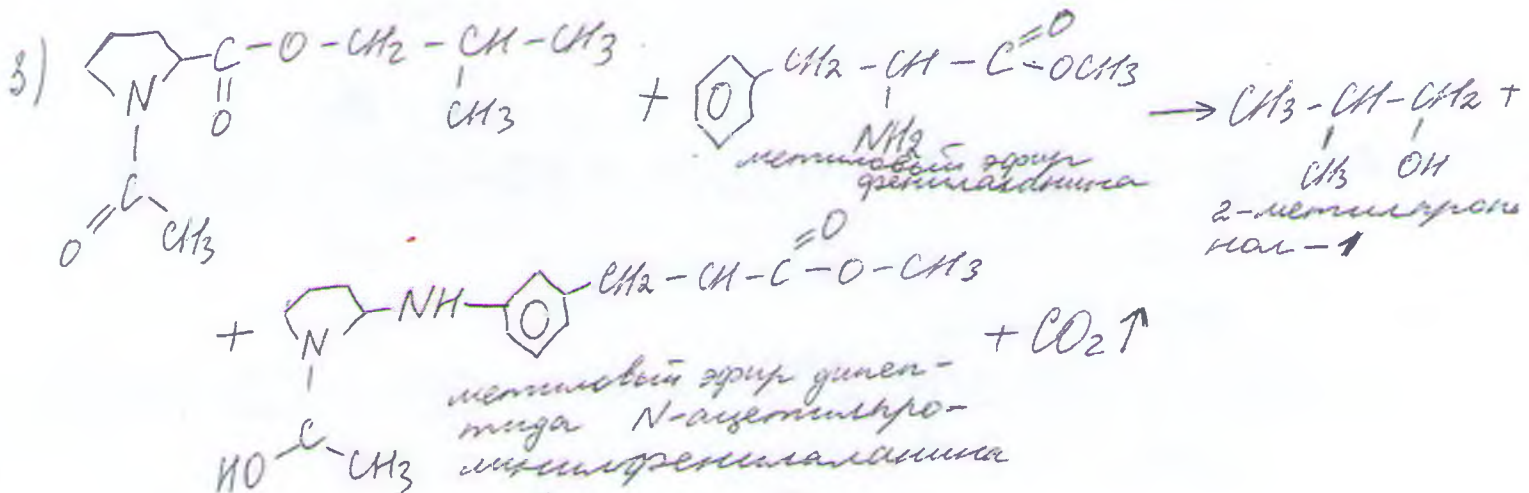 3) C – O – CH2 – CH – CH3
N O CH3
C
O CH3
+ CH2 – CH – C O – OCH3
NH2
метиловый эфир
фенилаланина
→ CH3 – CH – CH2 +
CH3 OH
2-метилпропа
нол – 1
+ N – NH – CH2 – CH – C O – O – CH3 + CO2↑
C
HO CH3
метиловый эфир дипеп-
тида N-ацетилпро-
линилфенилаланина